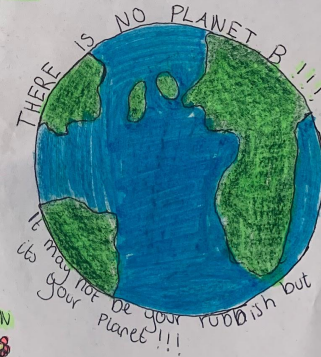 THERE IS NO PLANET B!!!
It may not be your rubbish but
its your Planet!!!
N